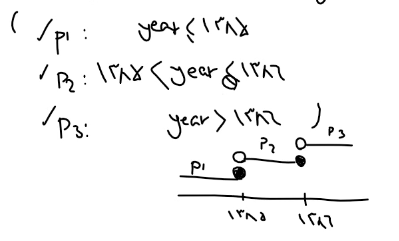 ( ✓ p1: year ≤ ۱۳۸۵
✓ p2: ۱۳۸۵ < year ≤ ۱۳۸۶
✓ p3: year > ۱۳۸۶ )
p1 p2 p3
۱۳۸۵ ۱۳۸۶